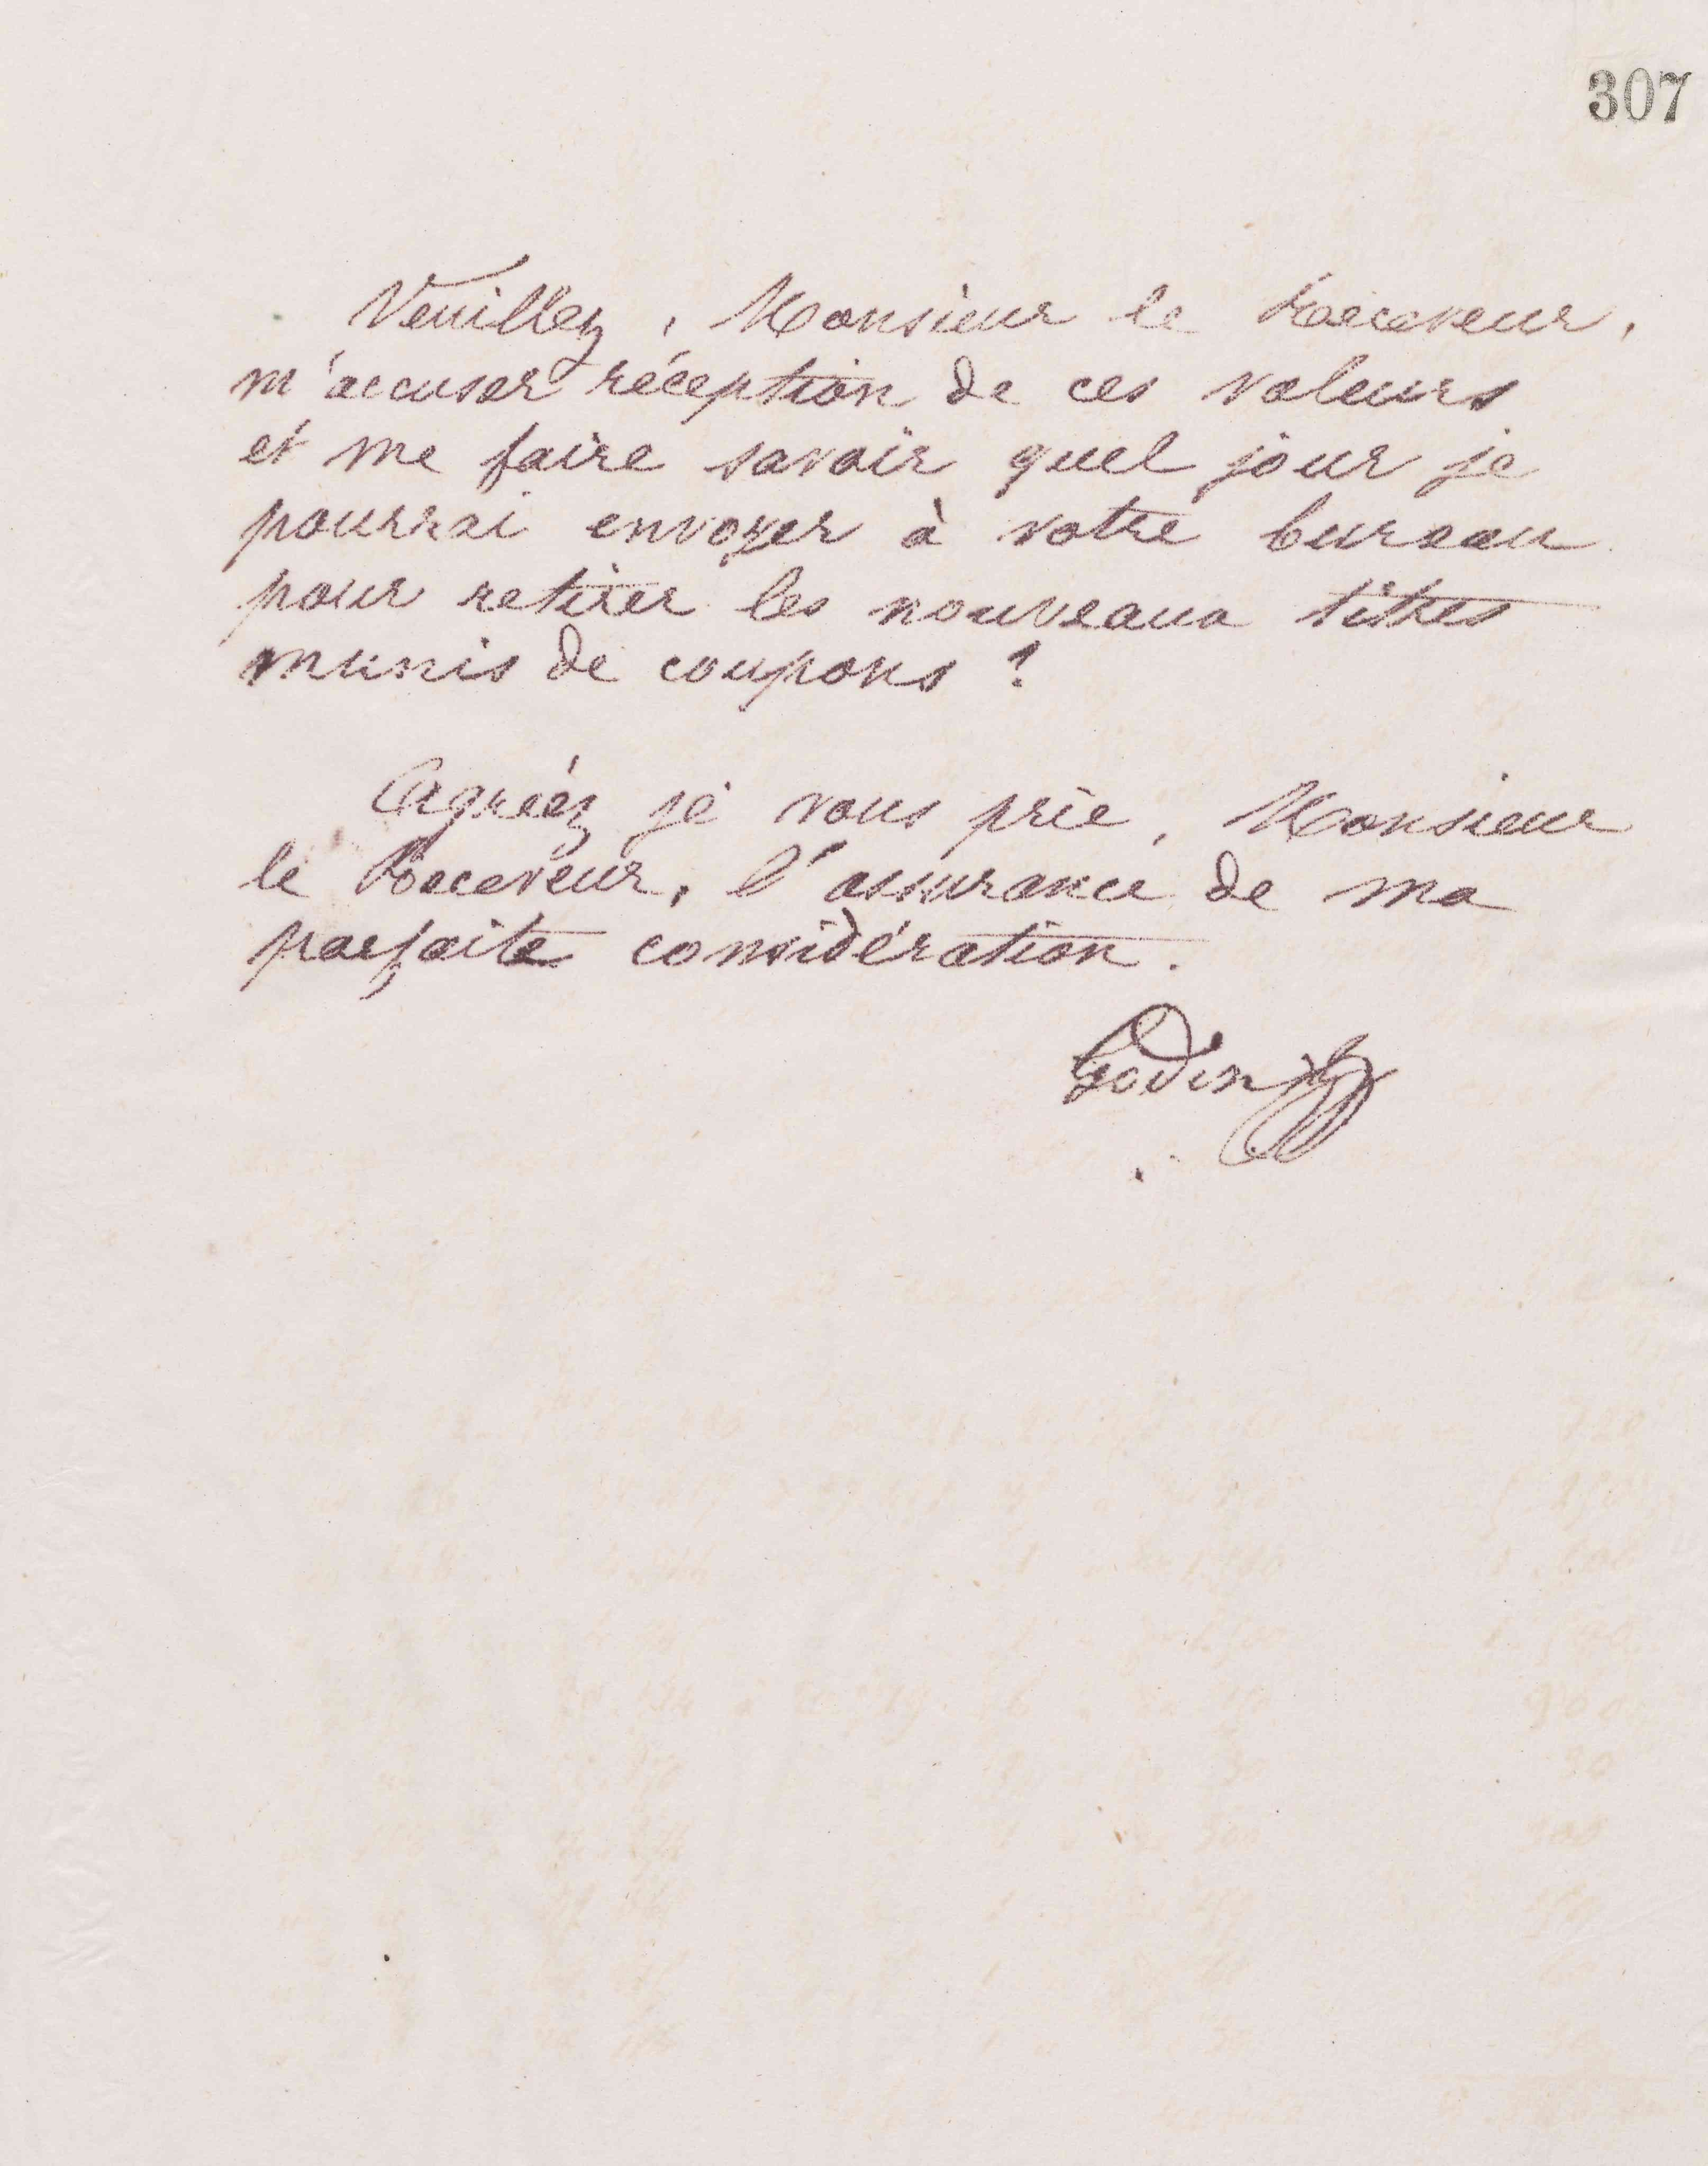 307
Veuillez, Monsieur le Receveur,
m'accuser réception de ces valeurs
et me faire savoir quel jour je
pourrai envoyer à votre bureau
pour retirer les nouveaux titres
munis de coupons ?
Agréez je vous prie, Monsieur
le Receveur, l'assurance de ma
parfaite considération.
Godin